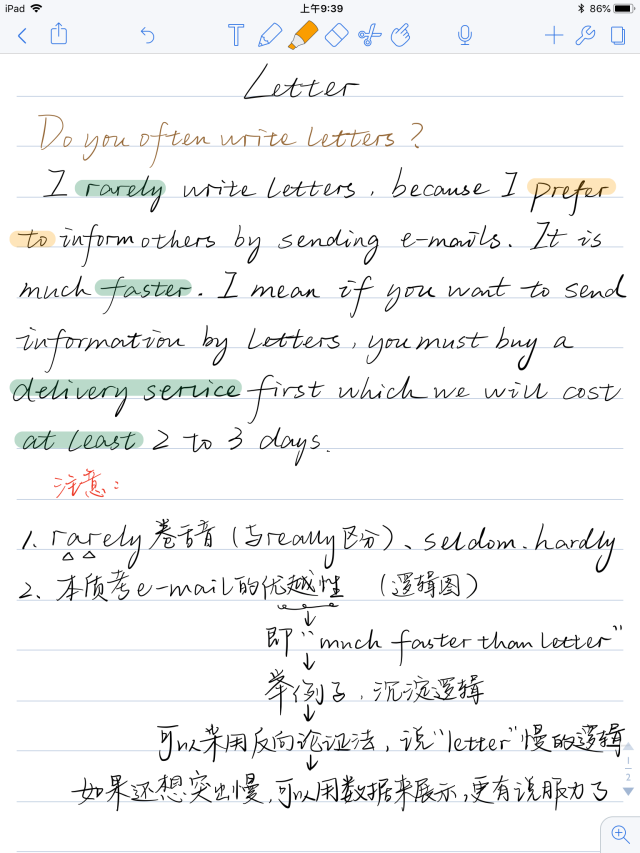 iPad 上午9:39 86%
Letter
Do you often write letters?
I rarely write letters, because I prefer
to inform others by sending e-mails. It is
much faster. I mean if you want to send
information by letters, you must buy a
delivery service first which we will cost
at least 2 to 3 days.
注意：
1. rarely 卷舌音（与really区分）、seldom、hardly
2. 本质考e-mail的优越性 （逻辑图）
↓
即"much faster than letter"
↓
举例子，沉淀逻辑
↓
可以采用反向论证法，说"letter"慢的逻辑
↓
如果还想突出慢，可以用数据来展示，更有说服力了
1
2